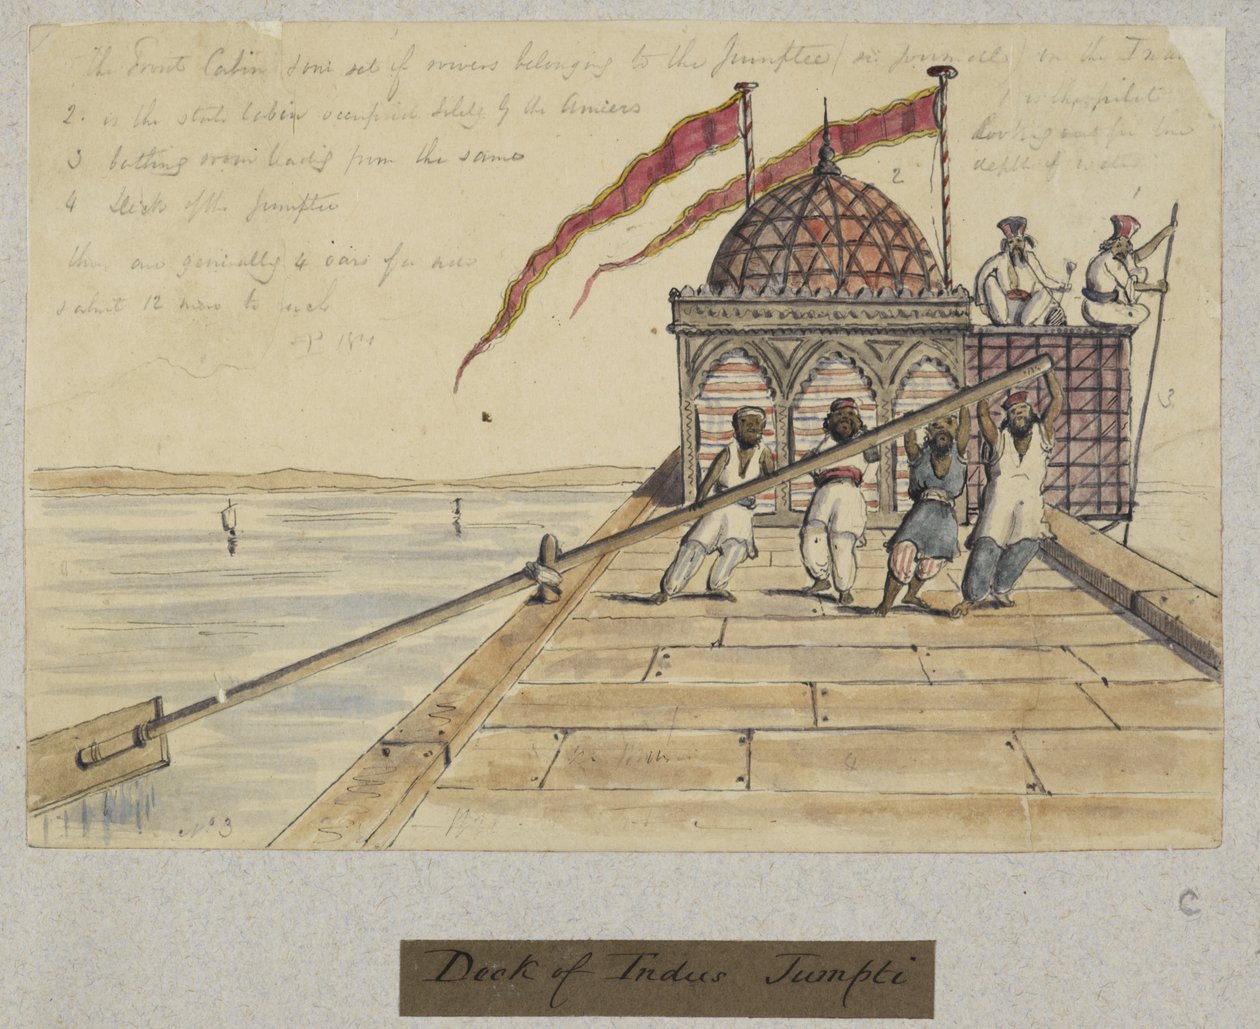 The Front Cabin & one set of rowers belonging to the Jumptee (see journal) on the
2. is the state cabin occupied solely by the Amiers
3 bathing room leading from the same
4 Deck of the Jumptee
there are generally 4 oars
about 12 men to each
1 is the pilot
looking out for the
depth of water
1
2
3
No 3
C
Deck of Indus Jumpti